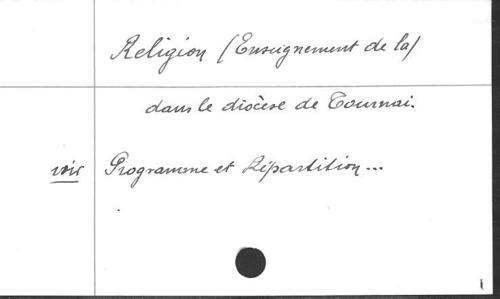 Religion (Enseignement de la)
dans le diocèse de Tournai.
voir Programme et Répartition...
1